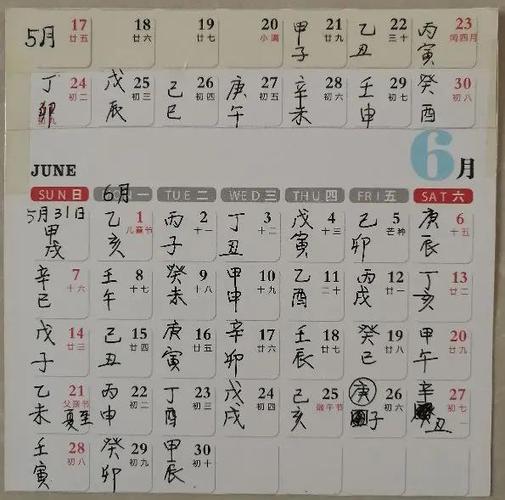 5月 17 廿五 18 廿六 19 廿七 20 小满 甲子 21 廿九 乙丑 22 三十 丙寅 23 闰四月
丁卯 24 初二 戊辰 25 初三 己巳 26 初四 庚午 27 初五 辛未 28 初六 壬申 29 初七 癸酉 30 初八
6月
JUNE
SUN 日 MON 一 TUE 二 WED 三 THU 四 FRI 五 SAT 六
6月
5月31日 甲戌 乙亥 1 儿童节 丙子 2 十一 丁丑 3 十二 戊寅 4 十三 己卯 5 芒种 庚辰 6 十五
辛巳 7 十六 壬午 8 十七 癸未 9 十八 甲申 10 十九 乙酉 11 二十 丙戌 12 廿一 丁亥 13 廿二
戊子 14 廿三 己丑 15 廿四 庚寅 16 廿五 辛卯 17 廿六 壬辰 18 廿七 癸巳 19 廿八 甲午 20 廿九
乙未 21 父亲节 夏至 丙申 22 初二 丁酉 23 初三 戊戌 24 初四 己亥 25 端午节 庚子 26 初六 辛丑 27 初七
壬寅 28 初八 癸卯 29 初九 甲辰 30 初十